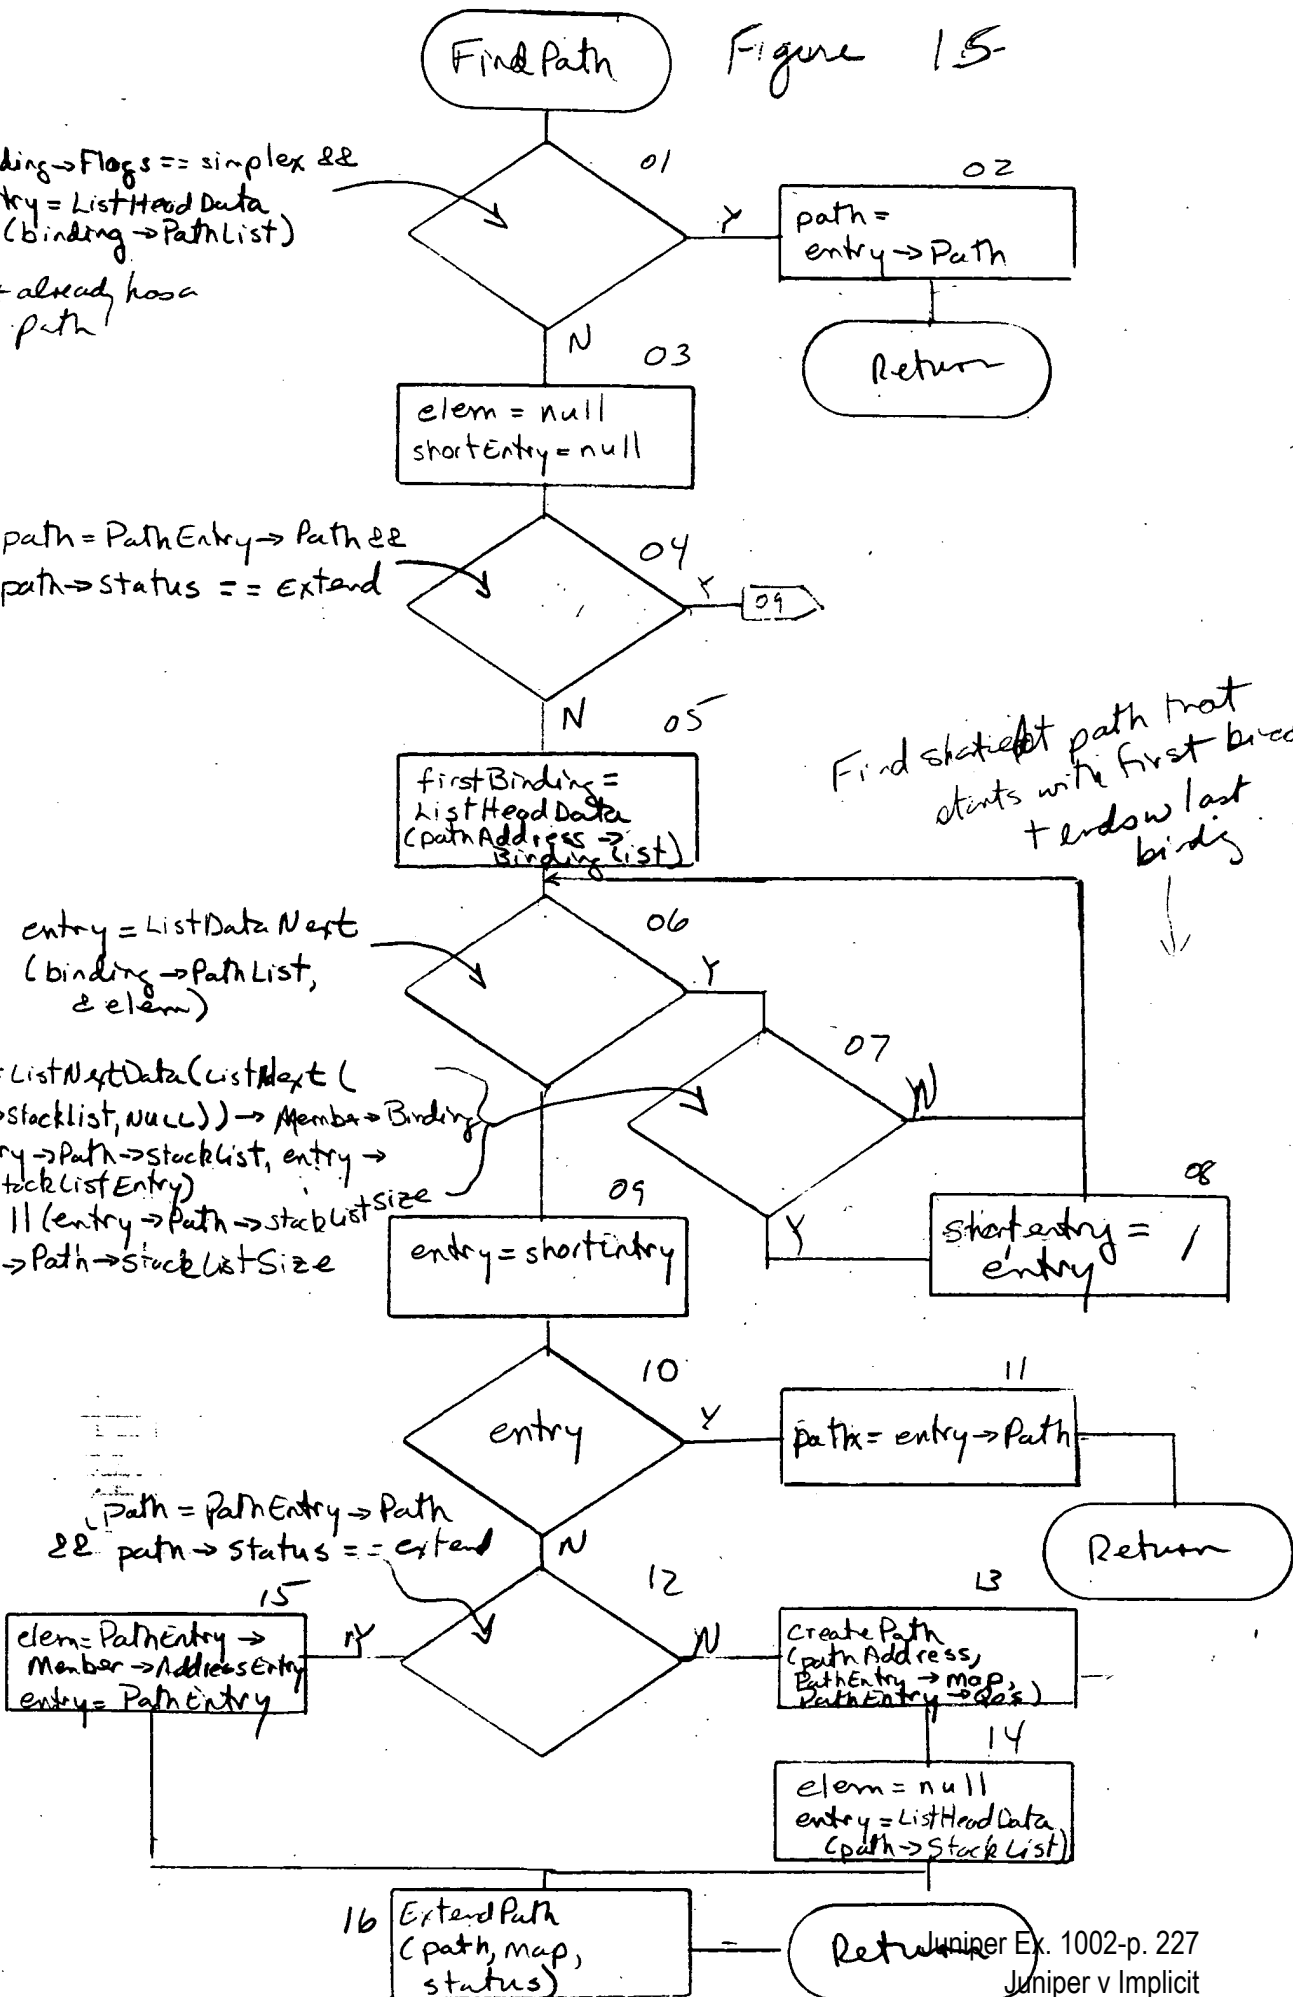 FindPath
Figure 15
ding→Flags == simplex &&
try = ListHeadData
(binding→PathList)
already has a
path
01
Y
02
path =
entry→Path
Return
N
03
elem = null
shortEntry = null
path = PathEntry→Path &&
path→Status == Extend
04
Y
09
N
05
firstBinding =
ListHeadData
(pathAddress→
BindingList)
Find path that
starts with first
+ ends w last
entry = ListDataNext
(binding→PathList,
& elem)
06
Y
07
N
= ListNextData(ListNext(
→stacklist, NULL))→Member→Binding
ry→Path→stackList, entry→
tackListEntry)
|| (entry→Path→stackListSize
→Path→stackListSize
08
Y
shortentry =
entry
09
entry = shortEntry
10
entry
Y
11
path = entry→Path
Return
path = pathEntry→Path
&& path→status == extend
N
12
15
elem = PathEntry→
Member→AddressEntry
entry = PathEntry
Y
N
13
CreatePath
(pathAddress,
PathEntry→map,
PathEntry→QoS)
14
elem = null
entry = ListHeadData
(path→StackList)
16
ExtendPath
(path, map,
status)
Return
Juniper Ex. 1002-p. 227
Juniper v Implicit